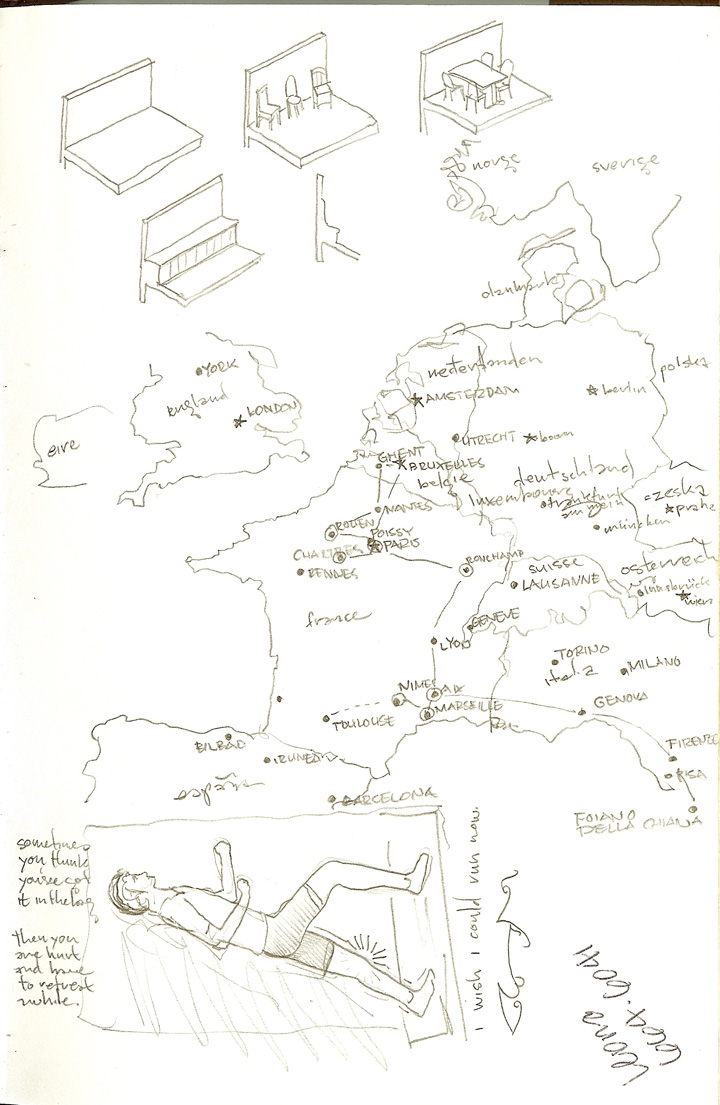 norge
sverige
danmark
YORK
england
LONDON
eire
nederlanden
AMSTERDAM
berlin
polska
UTRECHT
GHENT
BRUXELLES
belgie
deutschland
luxembourg
frankfurt
am mein
munchen
prahe
NANTES
ROUEN
POISSY
PARIS
CHARTRES
RENNES
RONCHAMP
SUISSE
LAUSANNE
osterreich
innsbrück
wien
france
LYON
GENEVE
TORINO
italia
MILANO
NIMES
AIX
GENOVA
MARSEILLE
TOULOUSE
FIRENZE
PISA
BILBAO
IRUNEA
españa
BARCELONA
FOIANO
DELLA CHIANA
sometimes
you think
you've got
it in the bag
then you
are hurt
and have
to retreat
awhile.
i wish i could run now.